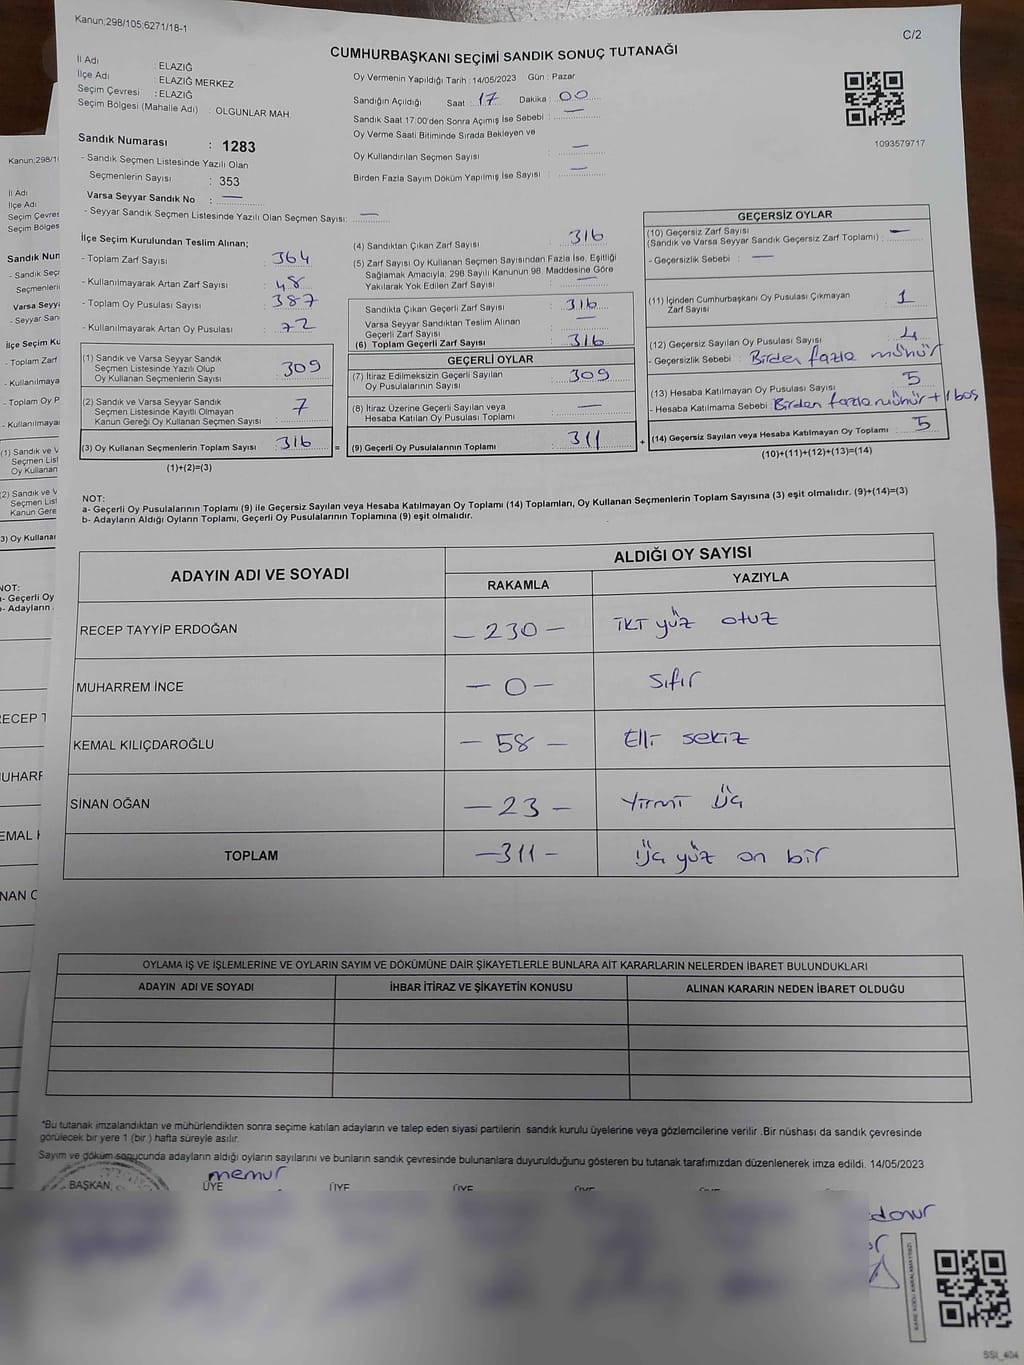 Kanun;298/105;6271/18-1
C/2
CUMHURBAŞKANI SEÇİMİ SANDIK SONUÇ TUTANAĞI
İl Adı : ELAZIĞ
İlçe Adı : ELAZIĞ MERKEZ
Seçim Çevresi : ELAZIĞ
Seçim Bölgesi (Mahalle Adı) : OLGUNLAR MAH.
Oy Vermenin Yapıldığı Tarih : 14/05/2023 Gün : Pazar
Sandığın Açıldığı Saat : 17 Dakika : 00
Sandık Saat 17:00'den Sonra Açımış İse Sebebi : —
Oy Verme Saati Bitiminde Sırada Bekleyen ve
Oy Kullandırılan Seçmen Sayısı : —
Birden Fazla Sayım Döküm Yapılmış İse Sayısı : —
1093579717
Sandık Numarası : 1283
- Sandık Seçmen Listesinde Yazılı Olan
Seçmenlerin Sayısı : 353
Varsa Seyyar Sandık No : —
- Seyyar Sandık Seçmen Listesinde Yazılı Olan Seçmen Sayısı: —
İlçe Seçim Kurulundan Teslim Alınan;
- Toplam Zarf Sayısı : 364
- Kullanılmayarak Artan Zarf Sayısı : 48
- Toplam Oy Pusulası Sayısı : 387
- Kullanılmayarak Artan Oy Pusulası : 72
(1) Sandık ve Varsa Seyyar Sandık
Seçmen Listesinde Yazılı Olup
Oy Kullanan Seçmenlerin Sayısı : 309
(2) Sandık ve Varsa Seyyar Sandık
Seçmen Listesinde Kayıtlı Olmayan
Kanun Gereği Oy Kullanan Seçmen Sayısı : 7
(3) Oy Kullanan Seçmenlerin Toplam Sayısı : 316
(1)+(2)=(3)
(4) Sandıktan Çıkan Zarf Sayısı : 316
(5) Zarf Sayısı Oy Kullanan Seçmen Sayısından Fazla İse, Eşitliği
Sağlamak Amacıyla; 298 Sayılı Kanunun 98. Maddesine Göre
Yakılarak Yok Edilen Zarf Sayısı : —
Sandıkta Çıkan Geçerli Zarf Sayısı : 316
Varsa Seyyar Sandıktan Teslim Alınan
Geçerli Zarf Sayısı : —
(6) Toplam Geçerli Zarf Sayısı : 316
GEÇERLİ OYLAR
(7) İtiraz Edilmeksizin Geçerli Sayılan
Oy Pusulalarının Sayısı : 309
(8) İtiraz Üzerine Geçerli Sayılan veya
Hesaba Katılan Oy Pusulaları Toplamı : —
= (9) Geçerli Oy Pusulalarının Toplamı : 311
GEÇERSİZ OYLAR
(10) Geçersiz Zarf Sayısı
(Sandık ve Varsa Seyyar Sandık Geçersiz Zarf Toplamı) : —
- Geçersizlik Sebebi : —
(11) İçinden Cumhurbaşkanı Oy Pusulası Çıkmayan
Zarf Sayısı : 1
(12) Geçersiz Sayılan Oy Pusulası Sayısı : 4
- Geçersizlik Sebebi : Birden fazla mühür
(13) Hesaba Katılmayan Oy Pusulası Sayısı : 5
- Hesaba Katılmama Sebebi : Birden fazla mühür + 1 boş
+ (14) Geçersiz Sayılan veya Hesaba Katılmayan Oy Toplamı : 5
(10)+(11)+(12)+(13)=(14)
NOT:
a- Geçerli Oy Pusulalarının Toplamı (9) ile Geçersiz Sayılan veya Hesaba Katılmayan Oy Toplamı (14) Toplamları, Oy Kullanan Seçmenlerin Toplam Sayısına (3) eşit olmalıdır. (9)+(14)=(3)
b- Adayların Aldığı Oyların Toplamı, Geçerli Oy Pusulalarının Toplamına (9) eşit olmalıdır.
ADAYIN ADI VE SOYADI
ALDIĞI OY SAYISI
RAKAMLA
YAZIYLA
RECEP TAYYİP ERDOĞAN — 230 — İki yüz otuz
MUHARREM İNCE — 0 — Sıfır
KEMAL KILIÇDAROĞLU — 58 — Elli sekiz
SİNAN OĞAN — 23 — Yirmi üç
TOPLAM — 311 — Üç yüz on bir
OYLAMA İŞ VE İŞLEMLERİNE VE OYLARIN SAYIM VE DÖKÜMÜNE DAİR ŞİKAYETLERLE BUNLARA AİT KARARLARIN NELERDEN İBARET BULUNDUKLARI
ADAYIN ADI VE SOYADI
İHBAR İTİRAZ VE ŞİKAYETİN KONUSU
ALINAN KARARIN NEDEN İBARET OLDUĞU
*Bu tutanak imzalandıktan ve mühürlendikten sonra seçime katılan adayların ve talep eden siyasi partilerin sandık kurulu üyelerine veya gözlemcilerine verilir. Bir nüshası da sandık çevresinde
görülecek bir yere 1 (bir) hafta süreyle asılır.
Sayım ve döküm sonucunda adayların aldığı oyların sayılarını ve bunların sandık çevresinde bulunanlara duyurulduğunu gösteren bu tutanak tarafımızdan düzenlenerek imza edildi. 14/05/2023
memur
BAŞKAN ÜYE ÜYE ÜYE
SSI_404